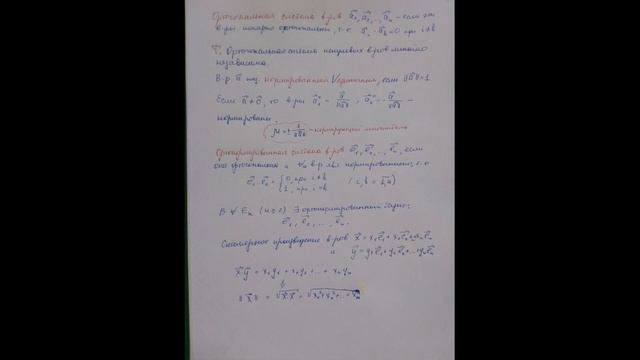 Ортогональная система в-ров a⃗₁, a⃗₂, ..., a⃗ₙ – если эти
в-ры попарно ортогональны, т.е. a⃗ᵢ · a⃗ₖ = 0 при i≠k
Т. Ортогональная система ненулевых в-ров линейно
независима.
В-р a⃗ наз. нормированным/единичным, если ||a⃗||=1.
Если a⃗ ≠ 0, то в-ры a⃗° = a⃗/||a⃗||, a⃗° = -a⃗/||a⃗|| –
нормированы.
μ = ± 1/||a⃗|| – нормирующий множитель
Ортонормированная система в-ров e⃗₁, e⃗₂, ..., e⃗ₙ, если
она ортогональна и ∀ в-р явл. нормированным, т.е.
e⃗ᵢ · e⃗ₖ = {0, при i≠k
{1, при i=k (i,k = 1,n)
В ∀ Eₙ (n≥2) ∃ ортонормированный базис:
e⃗₁, e⃗₂, ..., e⃗ₙ.
Скалярное произведение в-ров x⃗ = x₁e⃗₁+x₂e⃗₂+...xₙe⃗ₙ
и y⃗ = y₁e⃗₁+y₂e⃗₂+...yₙe⃗ₙ
x⃗·y⃗ = x₁y₁ + x₂y₂ + ... + xₙyₙ
⇓
||x⃗|| = √(x⃗·x⃗) = √(x₁²+x₂²+...+xₙ²)